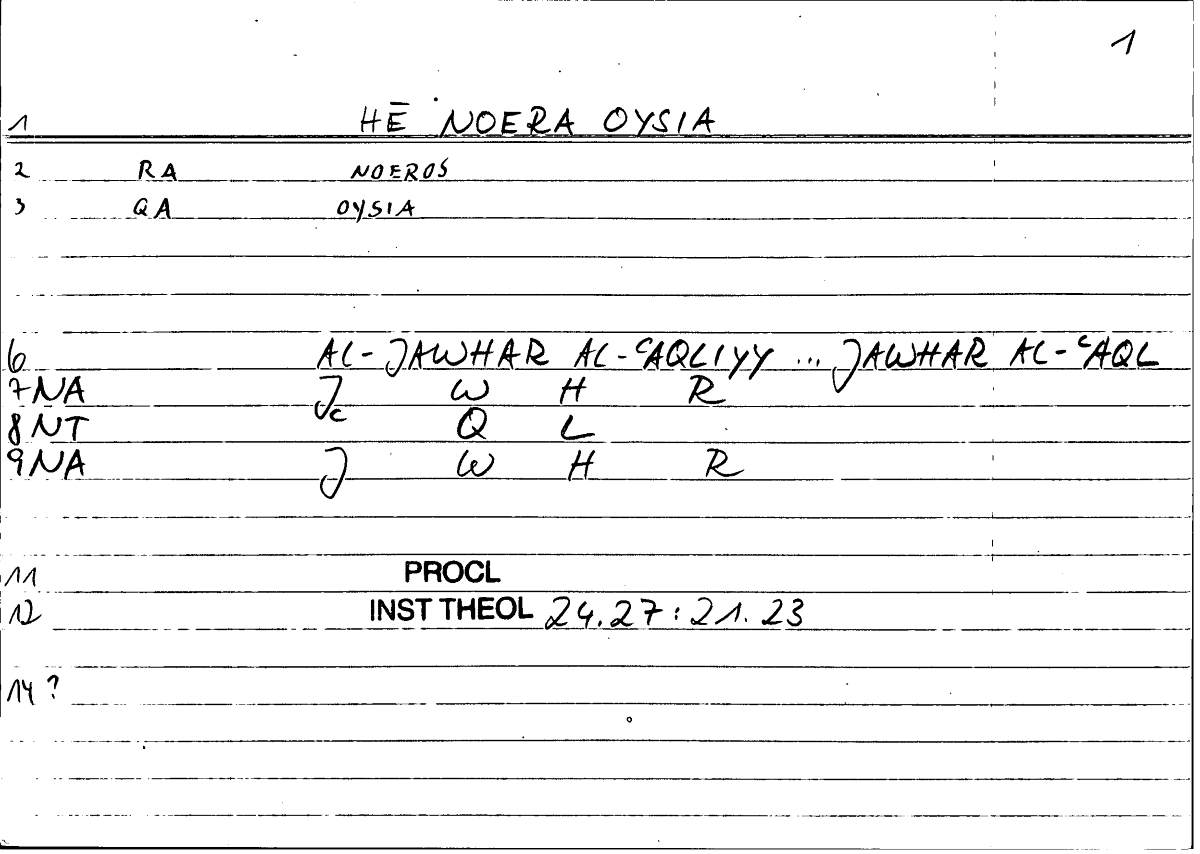 1
1 HĒ NOERA OYSIA
2 RA NOEROS
3 QA OYSIA
6 AL-JAWHAR AL-ʿAQLIYY ... JAWHAR AL-ʿAQL
7 NA J W H R
8 NT ʿ Q L
9 NA J W H R
11 PROCL
12 INST THEOL 24.27:21.23
14 ?